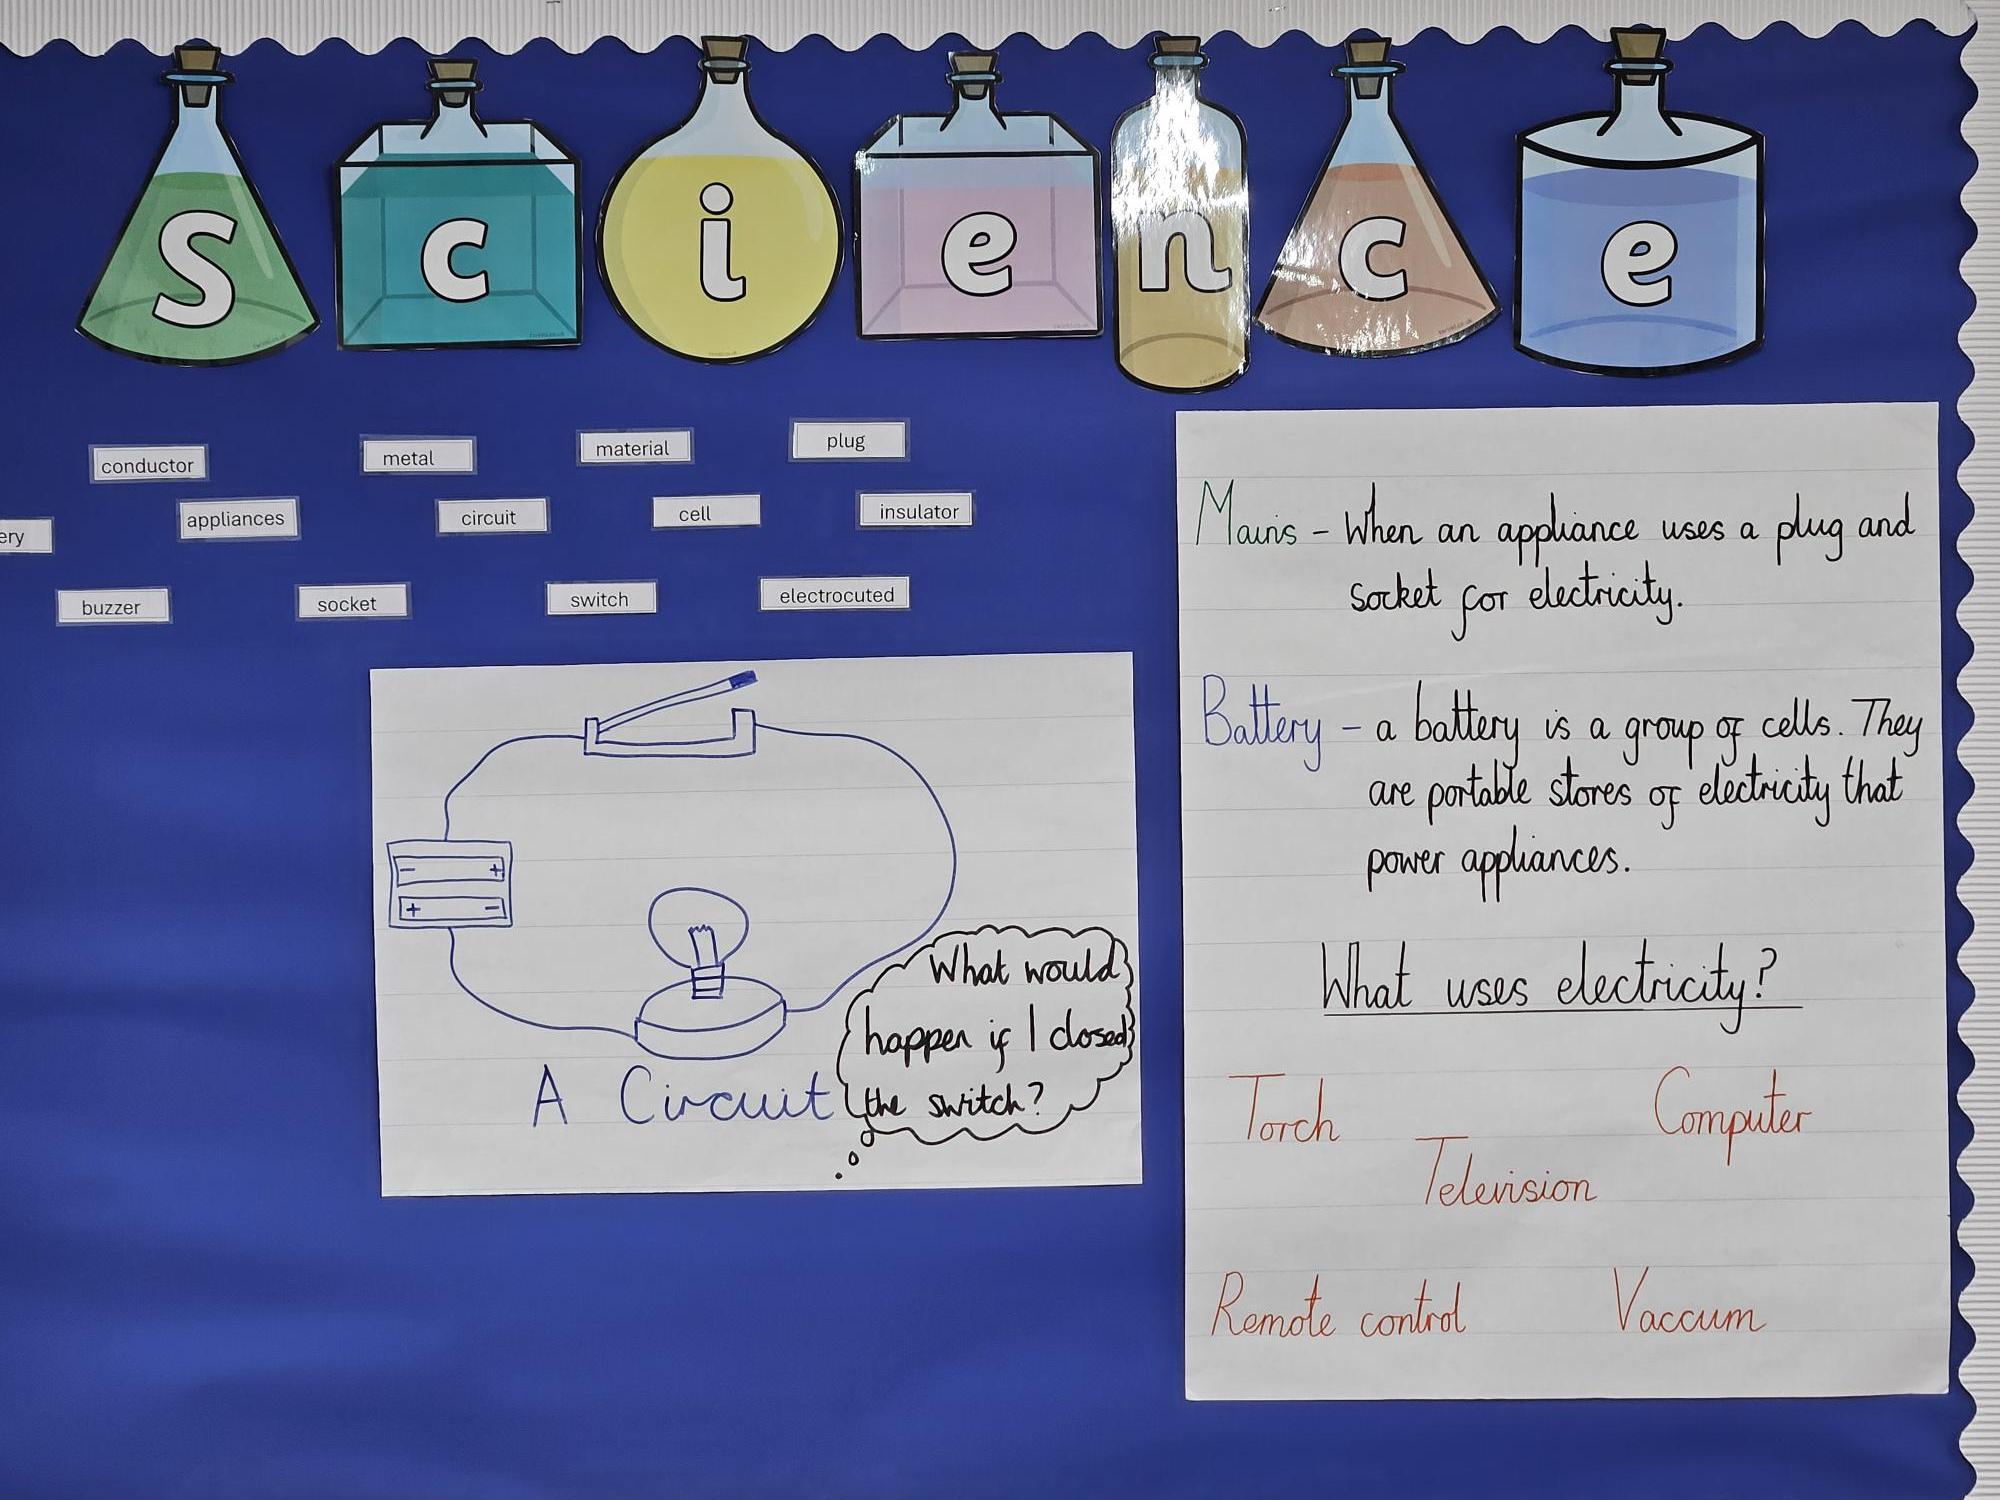 Science
conductor metal material plug
appliances circuit cell insulator
ery
buzzer socket switch electrocuted
- +
+ -
A Circuit
What would
happen if I closed
the switch?
Mains - When an appliance uses a plug and
socket for electricity.
Battery - a battery is a group of cells. They
are portable stores of electricity that
power appliances.
What uses electricity?
Torch Computer
Television
Remote control Vaccum